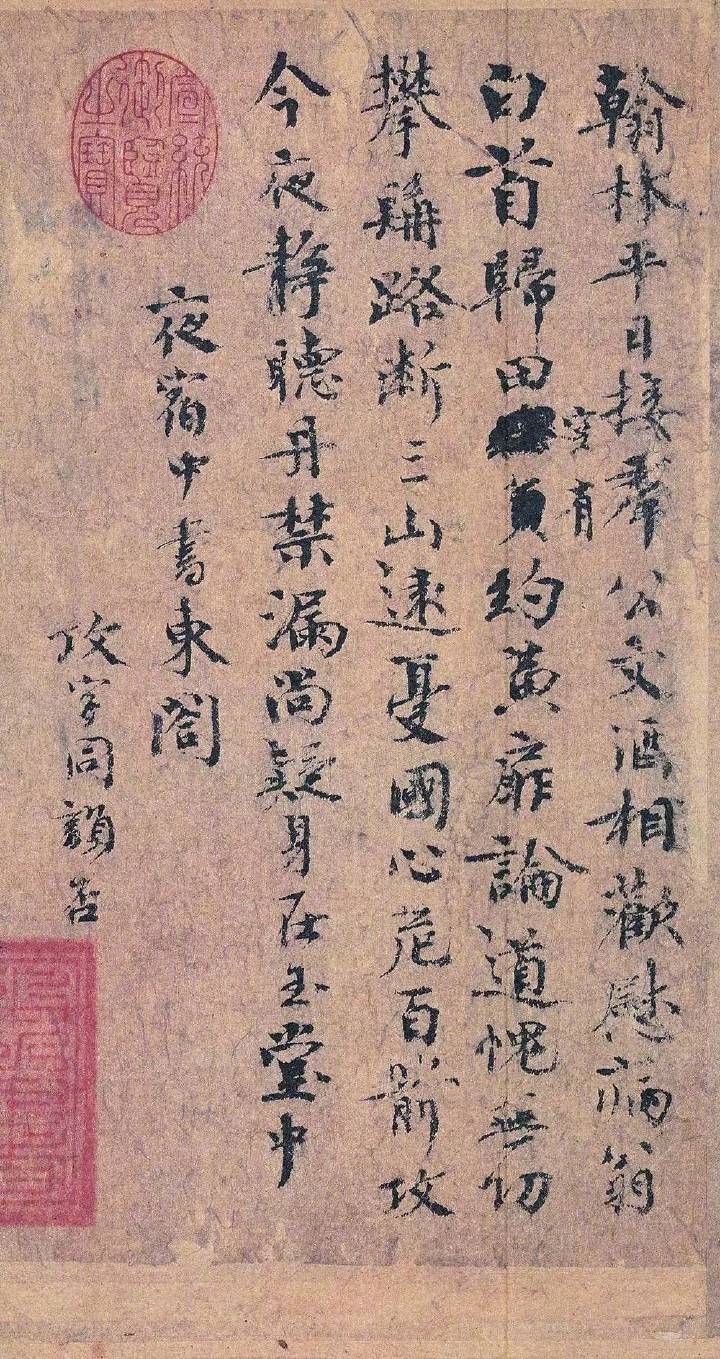 翰林平日接羣公文酒相歡慰病翁
白首歸田空有約黃扉論道愧無功
攀髯路斷三山遠憂國心危百箭攻
今夜靜聽丹禁漏尚疑身在玉堂中
夜宿中書東閤
攻字同韻否
宣統御覽之寶